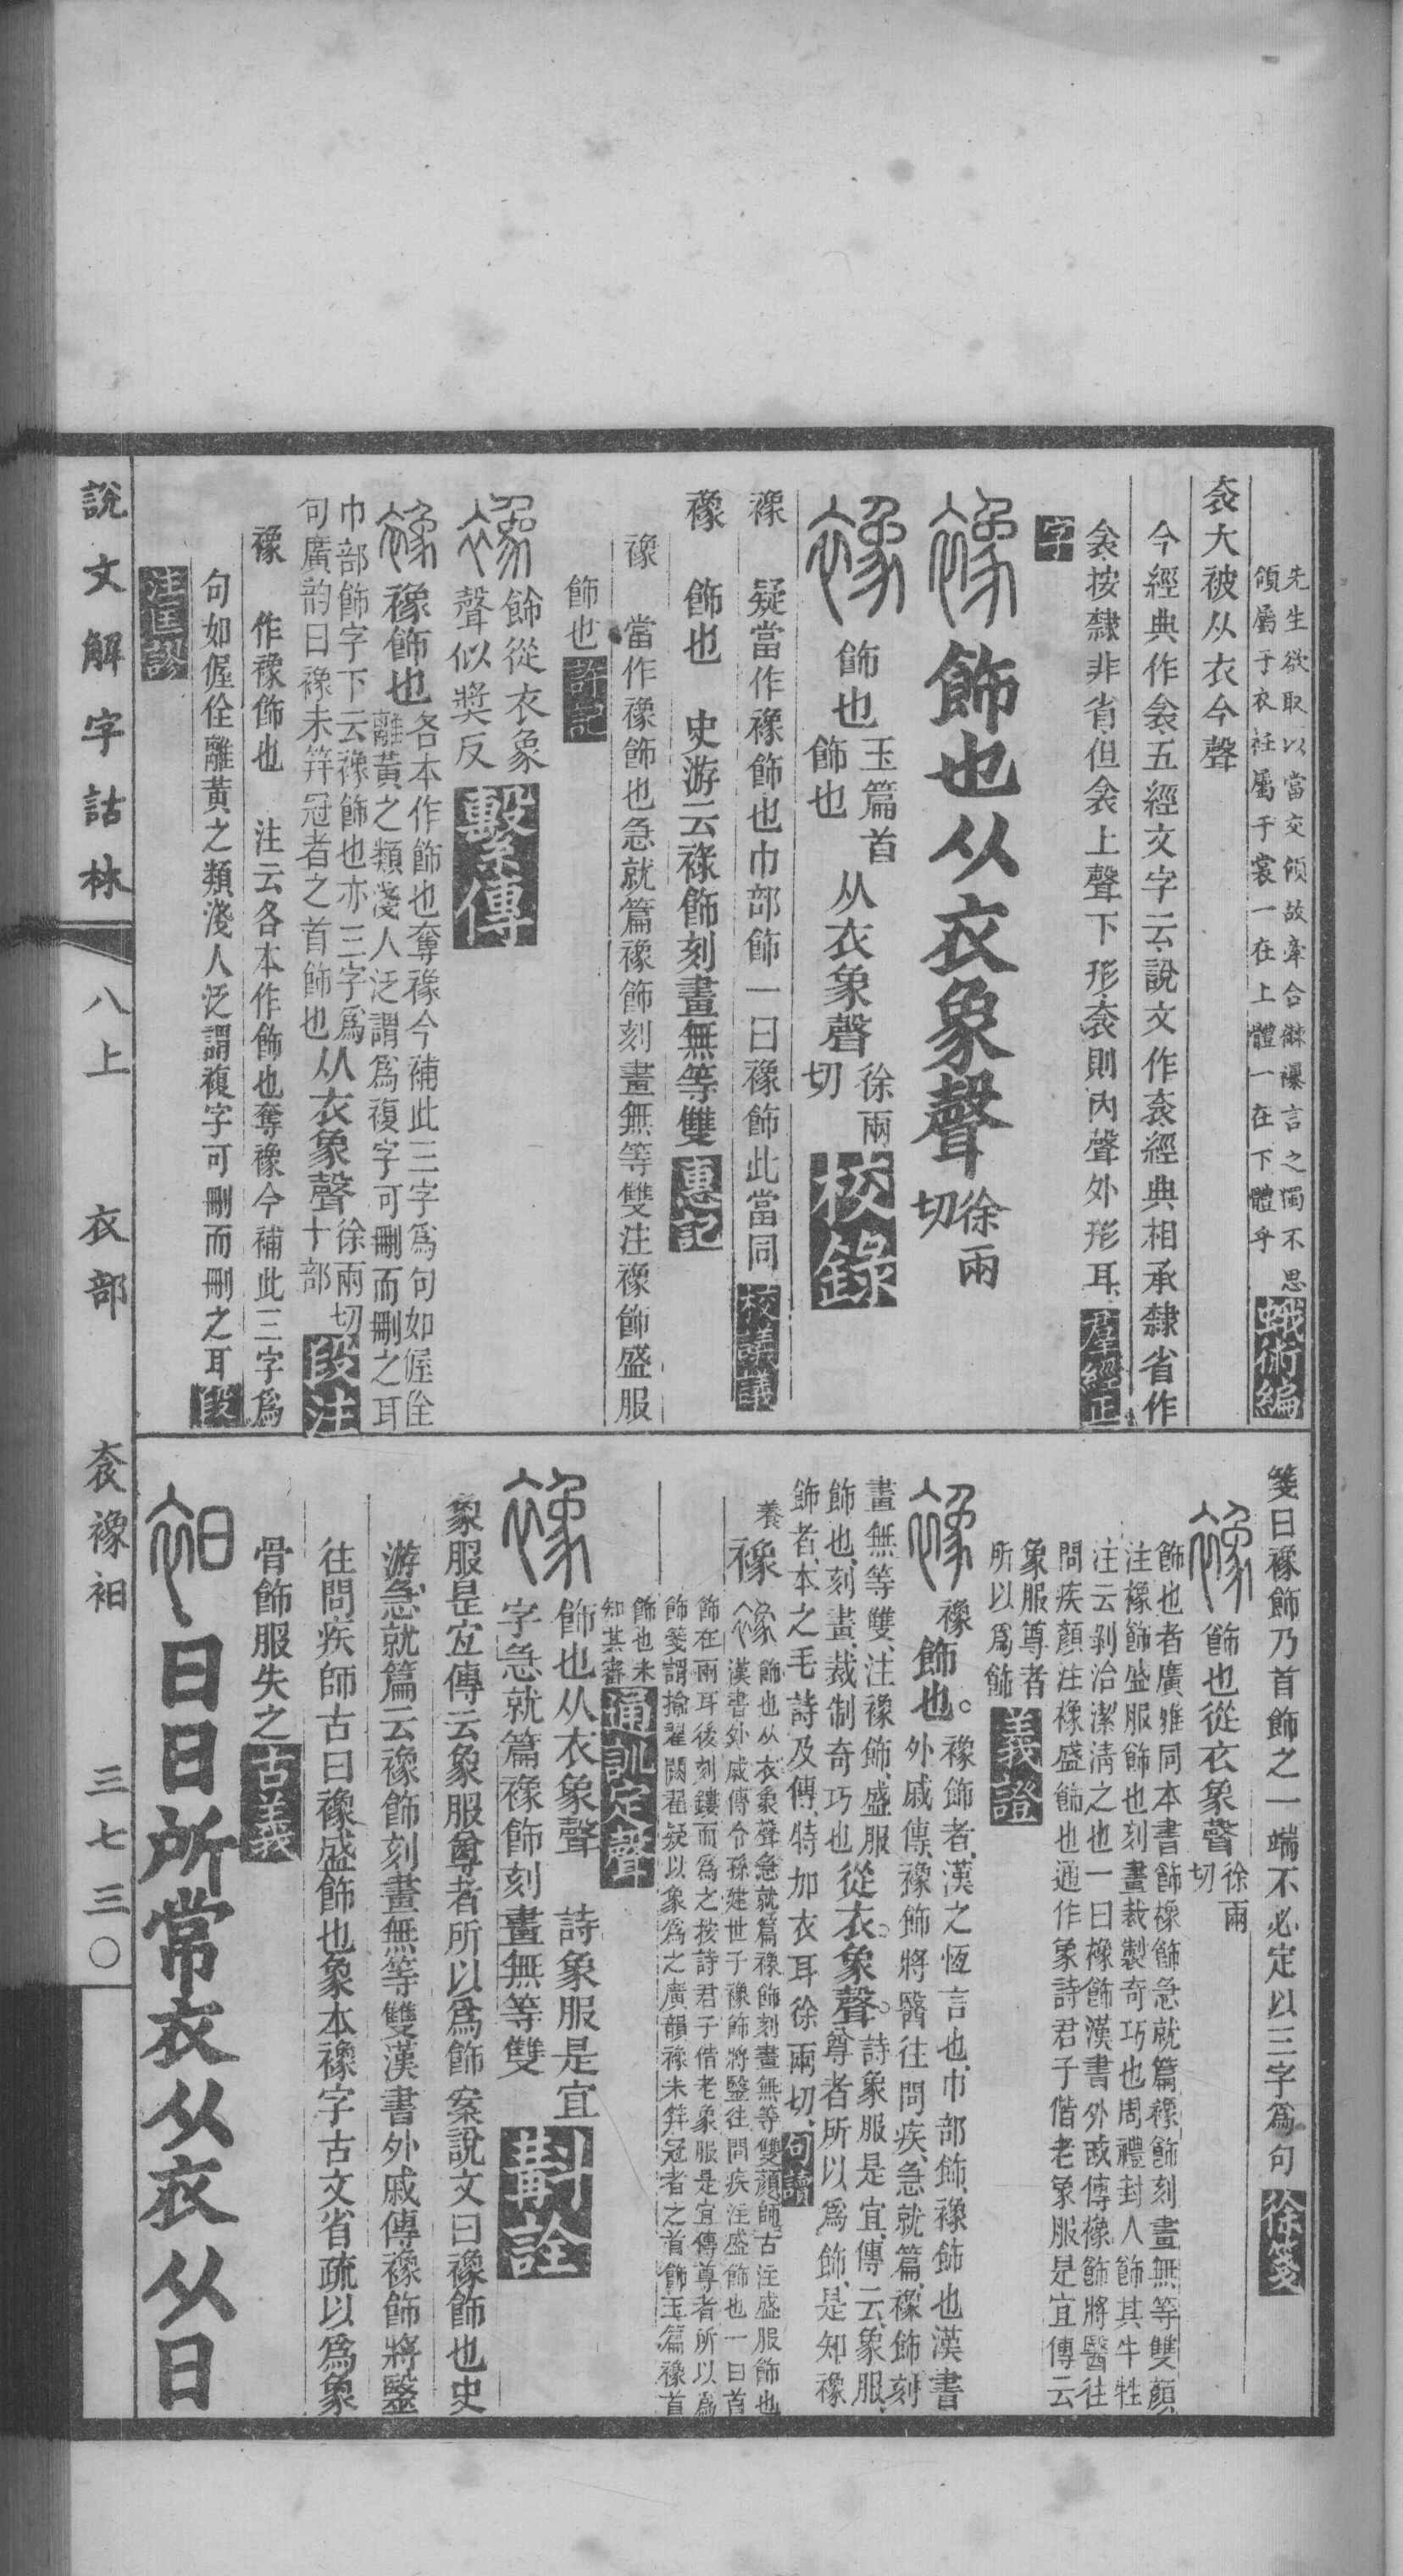 先生欲取以當交領故牽合㡘襮言之獨不思
領屬于衣衽屬于裳一在上體一在下體乎
蛾術編
衾大被从衣今聲
今經典作衾五經文字云說文作衾經典相承隸省作
衾按隸非省但衾上聲下形衾則內聲外形耳
羣經正字
飾也从衣象聲徐兩切
飾也玉篇首飾也从衣象聲徐兩切
校錄
襐 疑當作襐飾也巾部飾一曰襐飾此當同
校議議
襐 飾也 史游云襐飾刻畫無等雙
惠記
襐 當作襐飾也急就篇襐飾刻畫無等雙注襐飾盛服
飾也
許記
餙從衣象聲似獎反
繫傳
襐飾也各本作飾也奪襐今補此三字爲句如偓佺
離黃之類淺人泛謂爲複字可刪而刪之耳
巾部飾字下云襐飾也亦三字爲
句廣韵曰襐未笄冠者之首飾也
从衣象聲徐兩切十部
段注
襐 作襐飾也 注云各本作飾也奪襐今補此三字爲
句如偓佺離黃之類淺人泛謂複字可刪而刪之耳
段注匡謬
箋曰襐飾乃首飾之一端不必定以三字爲句
徐箋
飾也從衣象聲徐兩切
飾也者廣雅同本書飾襐飾急就篇襐飾刻畫無等雙顏
注襐飾盛服飾也刻畫裁製奇巧也周禮封人飾其牛牲
注云剝治潔淸之也一曰襐飾漢書外戚傳襐飾將醫往
問疾顏注襐盛飾也通作象詩君子偕老象服是宜傳云
象服尊者所以爲飾
義證
襐飾也。襐飾者、漢之恆言也、巾部飾、襐飾也漢書
外戚傳、襐飾將醫往問疾、急就篇、襐飾刻
畫無等雙、注襐飾、盛服
飾也、刻畫、裁制奇巧也
從衣象聲。詩象服是宜、傳云、象服、
尊者所以爲飾、是知襐
飾者、本之毛詩及傳、特加衣耳徐兩切、
句讀
養襐
飾也从衣象聲急就篇襐飾刻畫無等雙顏師古注盛服飾也
漢書外戚傳令孫建世子襐飾將毉往問疾注盛飾也一曰首
飾在兩耳後刻鏤而爲之按詩君子偕老象服是宜傳尊者所以爲
飾箋謂揄翟闕翟疑以象爲之廣韻襐未笄冠者之首飾玉篇襐首
飾也未知其審
通訓定聲
飾也从衣象聲 詩象服是宜
字急就篇襐飾刻畫無等雙
斠詮
象服是宜傳云象服尊者所以爲飾 案說文曰襐飾也史
游急就篇云襐飾刻畫無等雙漢書外戚傳襐飾將毉
往問疾師古曰襐盛飾也象本襐字古文省疏以爲象
骨飾服失之
古義
日日所常衣从衣从日
說文解字詁林 八上 衣部 衾襐衵 三七三〇